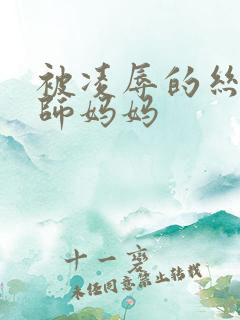 被凌辱的丝
师妈妈
十一君
未经同意禁止转载